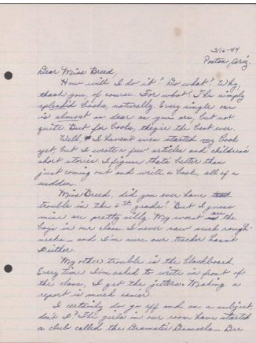 3/16-44
Poston, Ariz.
Dear Miss Breed,
How will I do it! Do what? Why
thank you of course. For what? The simply
splendid books, naturally. Every single one
is almost as dear as you are, but not
quite. But for books, they're the best ever.
Well, I haven't started my book
yet but I wrote a few articles and children's
short stories. I figure that's better than
just coming out and write a book all of a
sudden.
Miss Breed, did you ever have
trouble in the 6th grade? But I guess
mine are pretty silly. My worst are the
boys in our class. I never saw such rough-
necks - and I'm sure our teacher hasn't
either.
My other trouble is the blackboard.
Every time I'm asked to write in front of
the class, I get the jitters. Making a
report is much easier.
I certainly do go off and on a subject
don't I? The girls in our room have started
a club called the Dramatic Damsels. We